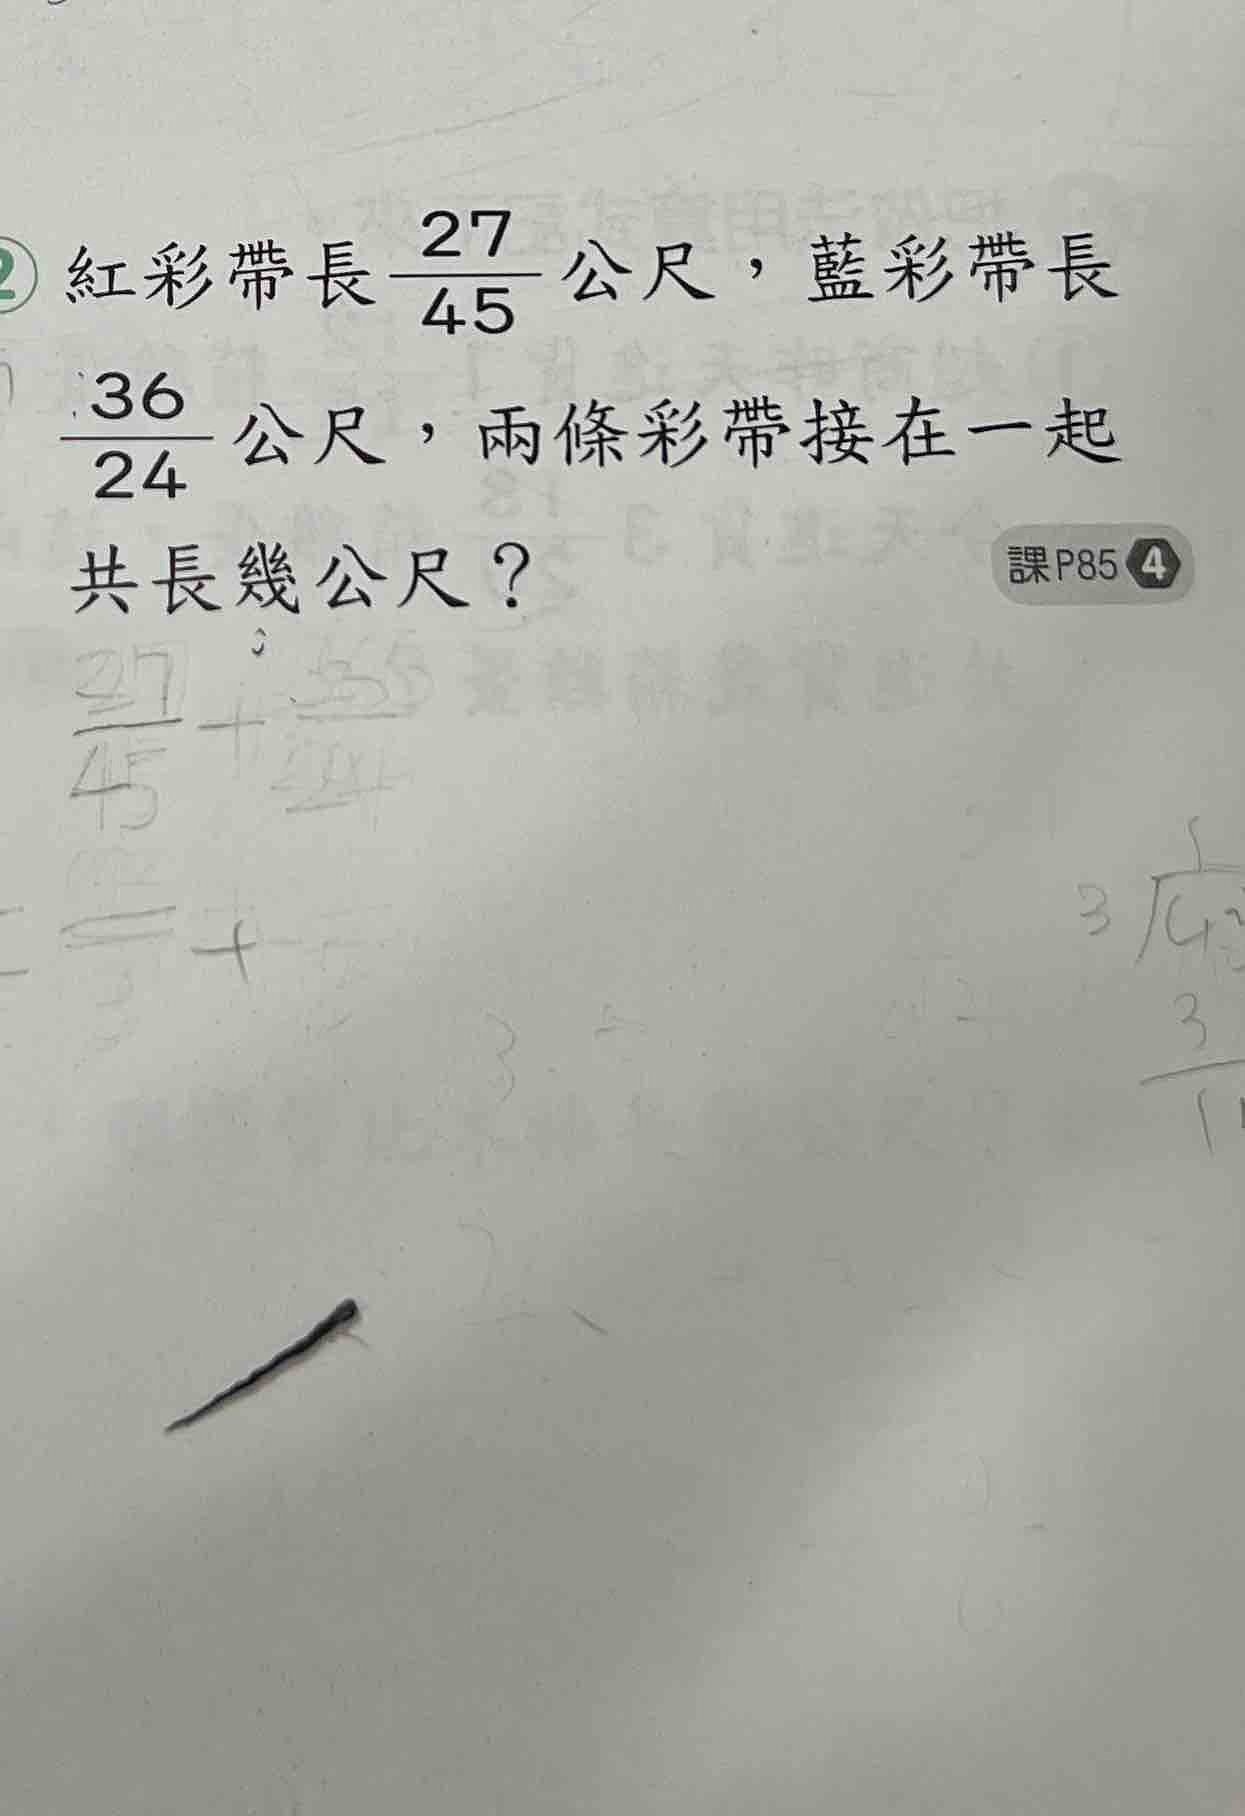 ② 紅彩帶長 27/45 公尺，藍彩帶長
36/24 公尺，兩條彩帶接在一起
共長幾公尺？ 課P85 4
27/45 +
3